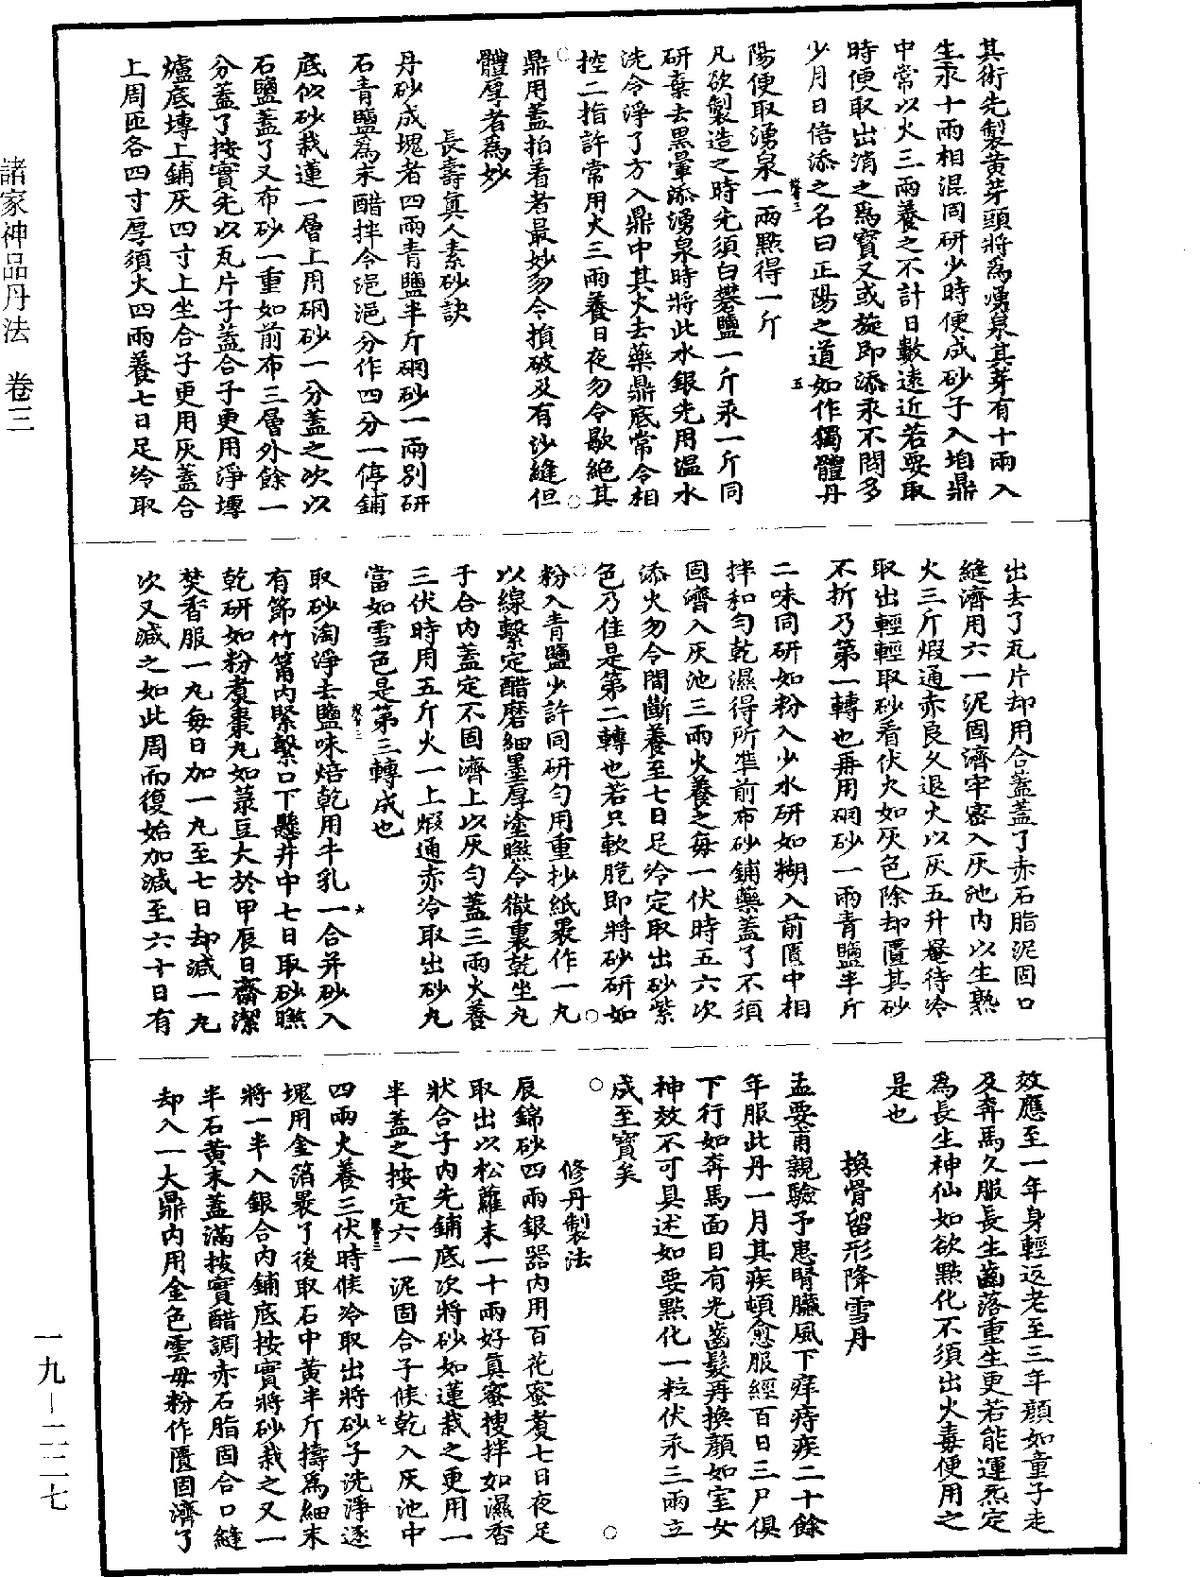 其術先製黃芽頭將爲湧泉其芽有十兩入
生汞十兩相混同研少時便成砂子入垍鼎
中常以火三兩養之不計日數遠近若要取
時便取出消之爲寶又或旋即添汞不問多
少月日倍添之名曰正陽之道如作獨體丹
陽便取湧泉一兩點得一斤
凡欲製造之時先須白礬鹽一斤汞一斤同
研棄去黑暈添湧泉時將此水銀先用溫水
洗令淨了方入鼎中其火去藥鼎底常令相
控二指許常用火三兩養日夜勿令歇絕其
鼎用蓋拍着者最妙勿令損破及有沙縫但
體厚者爲妙
長壽真人素砂訣
丹砂成塊者四兩青鹽半斤硇砂一兩別研
石青鹽爲末醋拌令浥浥分作四分一停鋪
底似砂栽蓮一層上用硇砂一分蓋之次以
石鹽蓋了又布砂一重如前布三層外餘一
分蓋了按實先以瓦片子蓋合子更用淨塼
爐底塼上鋪灰四寸上坐合子更用灰蓋合
上周匝各四寸厚須火四兩養七日足冷取
出去了瓦片却用合蓋蓋了赤石脂泥固口
縫濟用六一泥固濟牢密入灰池內以生熟
火三斤煆通赤良久退火以灰五升罨待冷
取出輕輕取砂看伏火如灰色除却匱其砂
不折乃第一轉也再用硇砂一兩青鹽半斤
二味同研如粉入少水研如糊入前匱中相
拌和勻乾濕得所準前布砂鋪藥蓋了不須
固濟入灰池三兩火養之每一伏時五六次
添火勿令間斷養至七日足冷定取出砂紫
色乃佳是第二轉也若只軟脆即將砂研如
粉入青鹽少許同研勻用重抄紙裹作一丸
以線繫定醋磨細墨厚塗𬋖令徹裏乾坐丸
子合內蓋定不固濟上以灰勻蓋三兩火養
三伏時用五斤火一上煆通赤冷取出砂丸
當如雪色是第三轉成也
取砂淘淨去鹽味焙乾用牛乳一合并砂入
有節竹筩內緊繫口下懸井中七日取砂𬋖
乾研如粉煑棗丸如菉豆大於甲辰日齋潔
焚香服一丸每日加一丸至七日却減一丸
次又減之如此周而復始加減至六十日有
效應至一年身輕返老至三年顏如童子走
及奔馬久服長生齒落重生更若能運炁定
爲長生神仙如欲點化不須出火毒便用之
是也
換骨留形降雪丹
孟要甫親驗予患腎臟風下痒痔疾二十餘
年服此丹一月其疾頓愈服經百日三尸俱
下行如奔馬面目有光齒髮再換顏如室女
神效不可具述如要點化一粒伏汞三兩立
成至寶矣
修丹製法
辰錦砂四兩銀器內用百花蜜煑七日夜足
取出以松蘿末一十兩好真蜜搜拌如濕香
狀合子內先鋪底次將砂如蓮栽之更用一
半蓋之按定六一泥固合子候乾入灰池中
四兩火養三伏時候冷取出將砂子洗淨逐
塊用金箔裹了後取石中黃半斤擣爲細末
將一半入銀合內鋪底按實將砂栽之又一
半石黃末蓋滿按實醋調赤石脂固合口縫
却入一大鼎內用金色雲母粉作匱固濟了
諸家神品丹法　卷三
一九—二二七